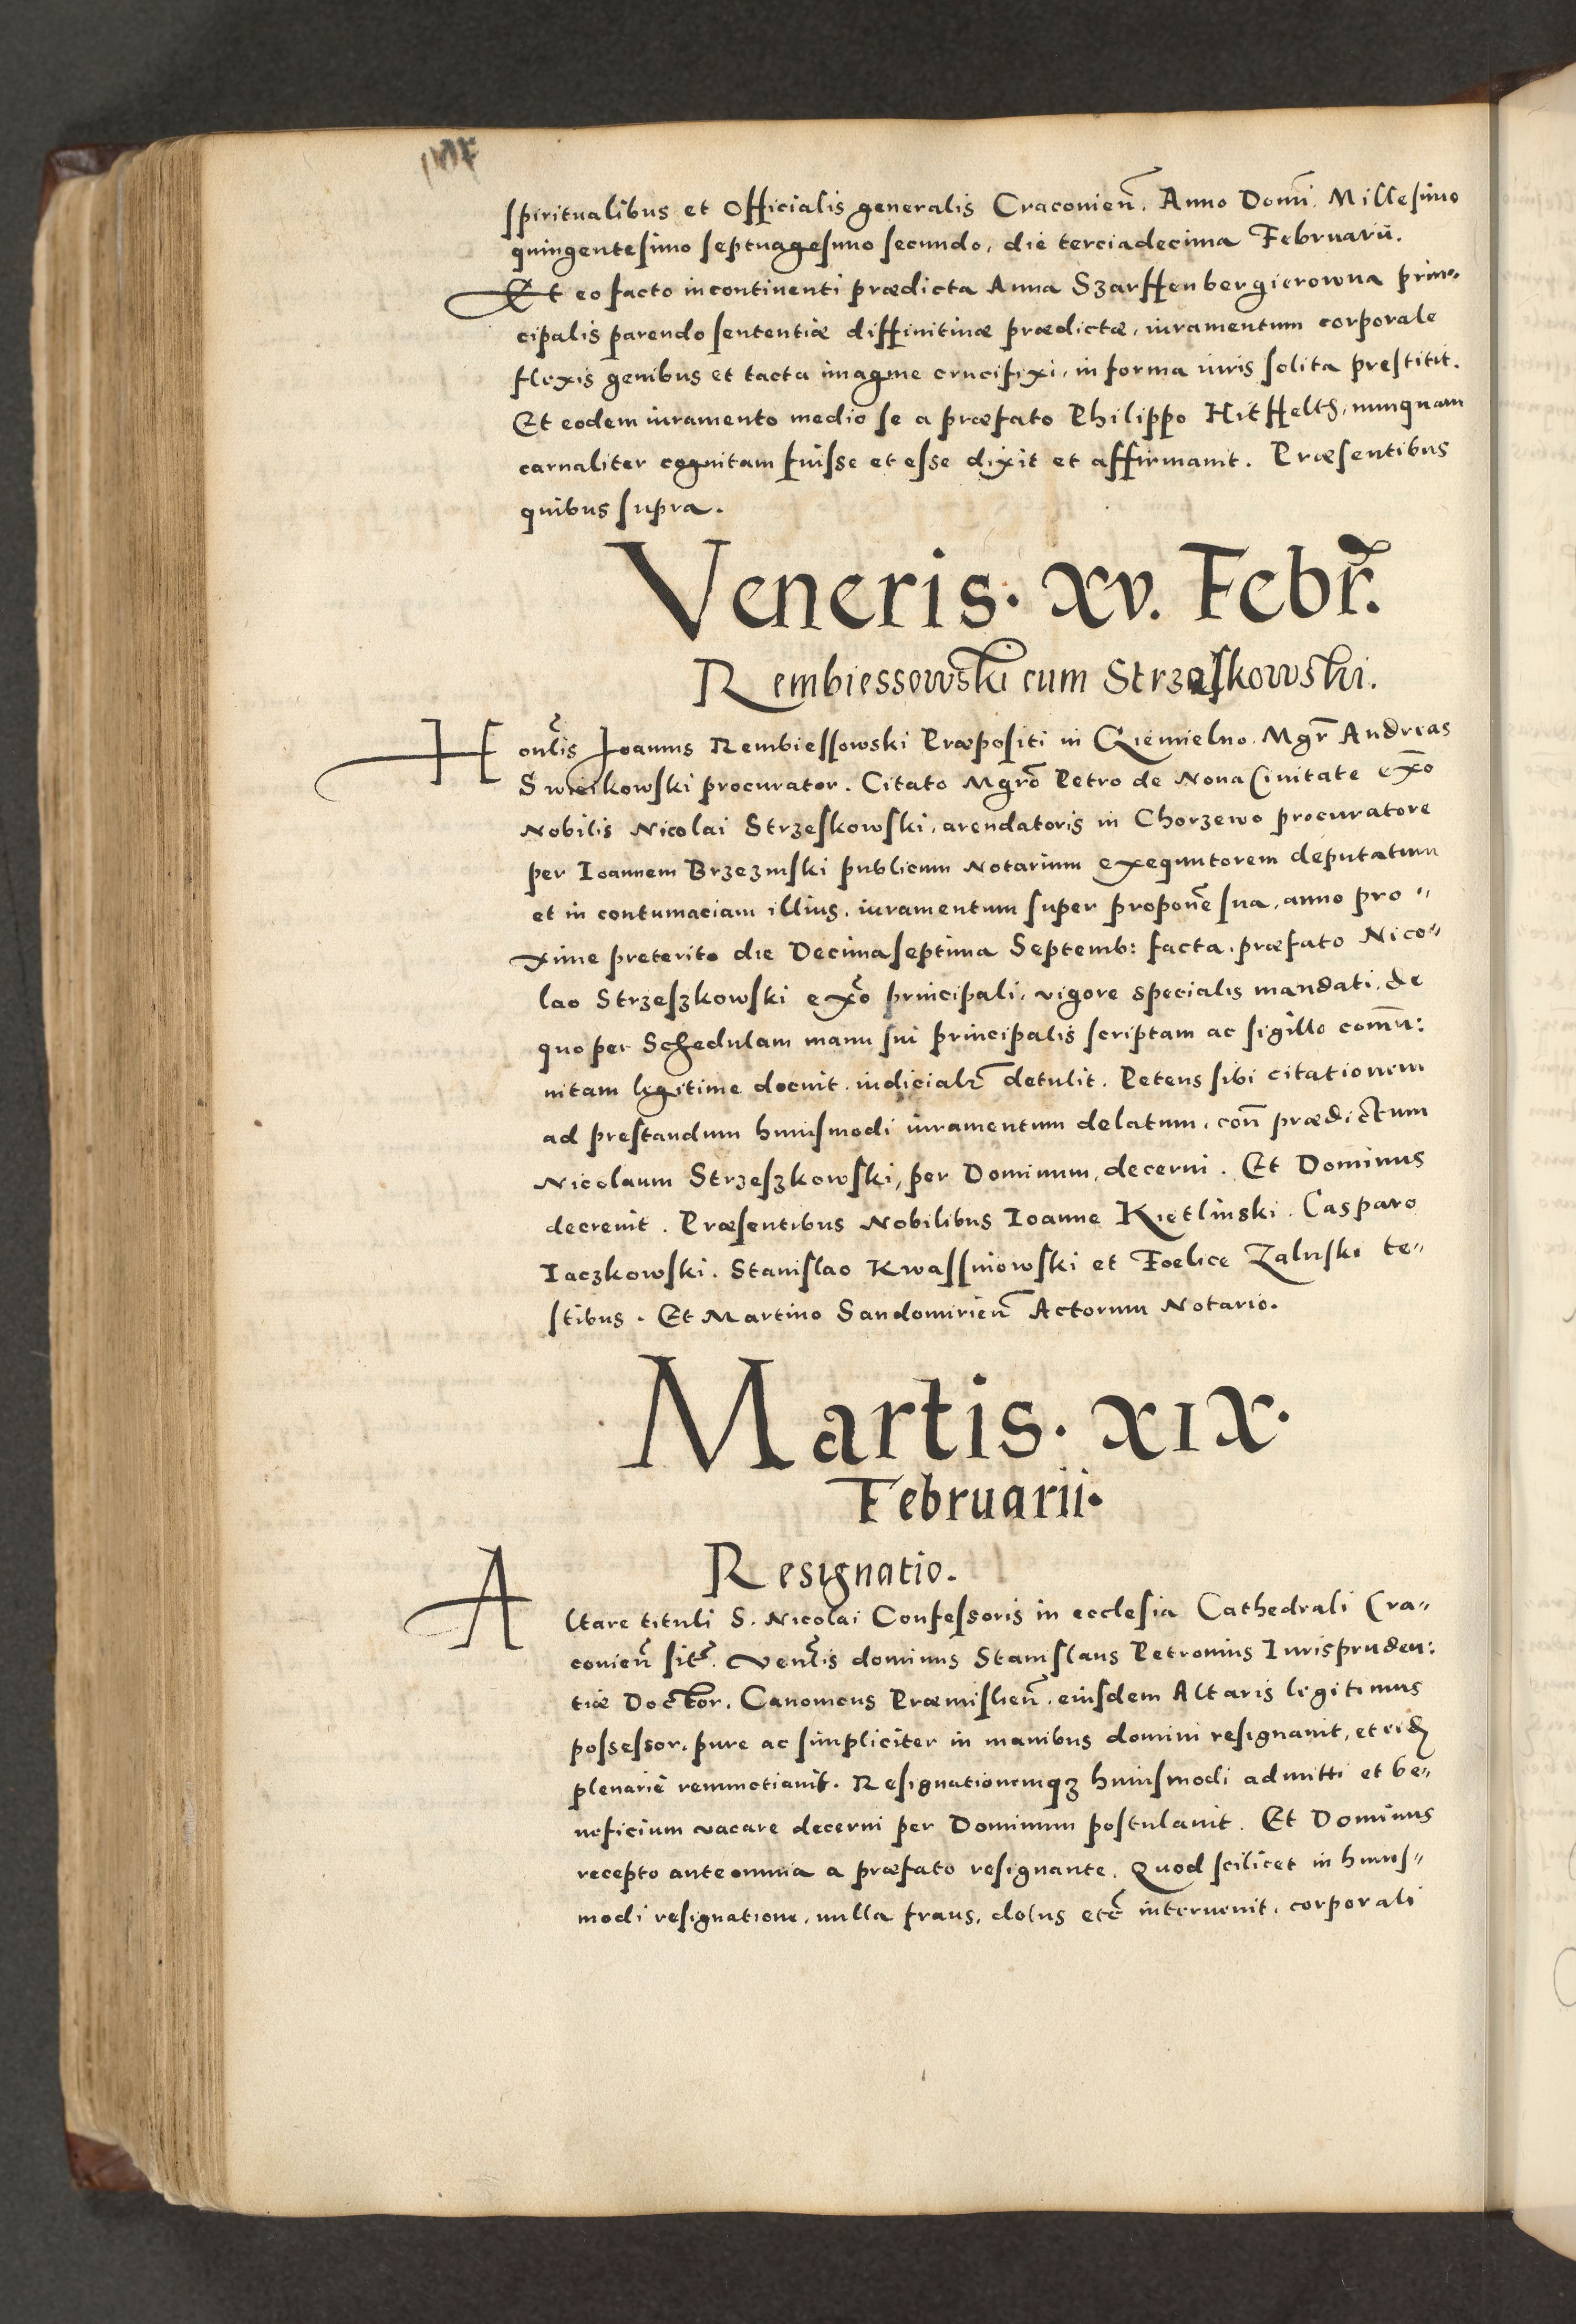 spiritualibus et Officialis generalis Cracovien̄. Anno Domī. Millesimo
quingentesimo septuagesimo secundo, die terciadecima Februarii.
Et eo facto incontinenti prædicta Anna Szarffenbergierowna prin⸗
cipalis parendo sententiæ diffinitivæ prædictæ, iuramentum corporale
flexis genibus et tacta imagine crucifixi, in forma iuris solita prestitit.
Et eodem iuramento medio se a præfato Philippo Hitffeltz, nunquam
carnaliter cognitam fuisse et esse dixit et affirmavit. Præsentibus
quibus supra.
Veneris. xv. Febr̄.
Rembiessowski cum Strzeskowski.
Honl̄is Joannis Rembiessowski Præpositi in Giemielno. Mgr̄ Andreas
Swieikowski procurator. Citato Mgrō Petro de Nova Civitate ex̄o
Nobilis Nicolai Strzeskowski, arendatoris in Chorzewo procuratore
per Ioannem Brzezinski publicum Notarium exequutorem deputatum
et in contumaciam illius, iuramentum super proponē sua, anno pro⸗
xime preterito die Decimaseptima Septemb: facta, præfato Nico⸗
lao Strzeszkowski ex̄o principali, vigore specialis mandati, de
quo per Schedulam manu sui principalis scriptam ac sigillo com̄u:
nitam legitime docuit, iudicialr̄ detulit. Petens sibi citationem
ad prestandum huiusmodi iuramentum delatum, con̄ prædictum
Nicolaum Strzeszkowski, per Dominum, decerni. Et Dominus
decrevit. Præsentibus Nobilibus Ioanne Kietlinski. Casparo
Iaczkowski. Stanislao Kwassniowski et Foelice Zaluski te⸗
stibus. Et Martino Sandomirien̄ Actorum Notario.
Martis. XIX.
Februarii.
Resignatio.
Altare tituli S. Nicolai Confessoris in ecclesia Cathedrali Cra⸗
covien̄ sit̄. Venl̄is dominus Stanislaus Petronius Iurispruden:
tiæ Doctor. Canonicus Præmislien̄, eiusdem Altaris legitimus
possessor, pure ac simpliciter in manibus domini resignavit, et eidē
plenarie renunctiavit. Resignationemqꝫ huiusmodi admitti et be⸗
neficium vacare decerni per Dominum postulavit. Et Dominus
recepto ante omnia a præfato resignante. Quod scilicet in huius⸗
modi resignatione, nulla fraus, dolus etc̄ intervenit, corporali